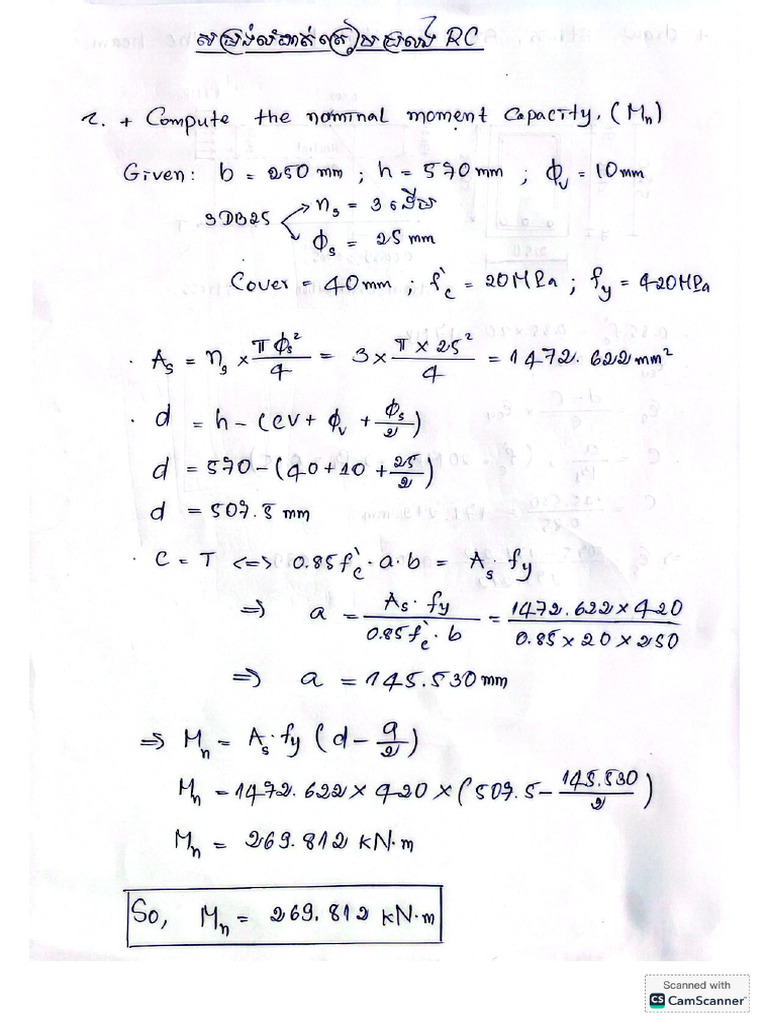 សម្រង់លំហាត់ត្រៀមប្រលង RC
2. + Compute the nominal moment capacity. (Mn)
Given: b = 250 mm ; h = 570 mm ; ϕv = 10 mm
3DB25 → ns = 3 ដើម
ϕs = 25 mm
Cover = 40 mm ; f'c = 20 MPa ; fy = 420 MPa
· As = ns × πϕs²/4 = 3 × π × 25²/4 = 1472.622 mm²
· d = h - (cv + ϕv + ϕs/2)
d = 570 - (40 + 10 + 25/2)
d = 507.5 mm
· C = T <=> 0.85f'c · a · b = As · fy
=> a = As · fy / 0.85f'c · b = 1472.622 × 420 / 0.85 × 20 × 250
=> a = 145.530 mm
=> Mn = As · fy (d - a/2)
Mn = 1472.622 × 420 × (507.5 - 145.530/2)
Mn = 269.812 kN·m
So, Mn = 269.812 kN·m
Scanned with
CS CamScanner